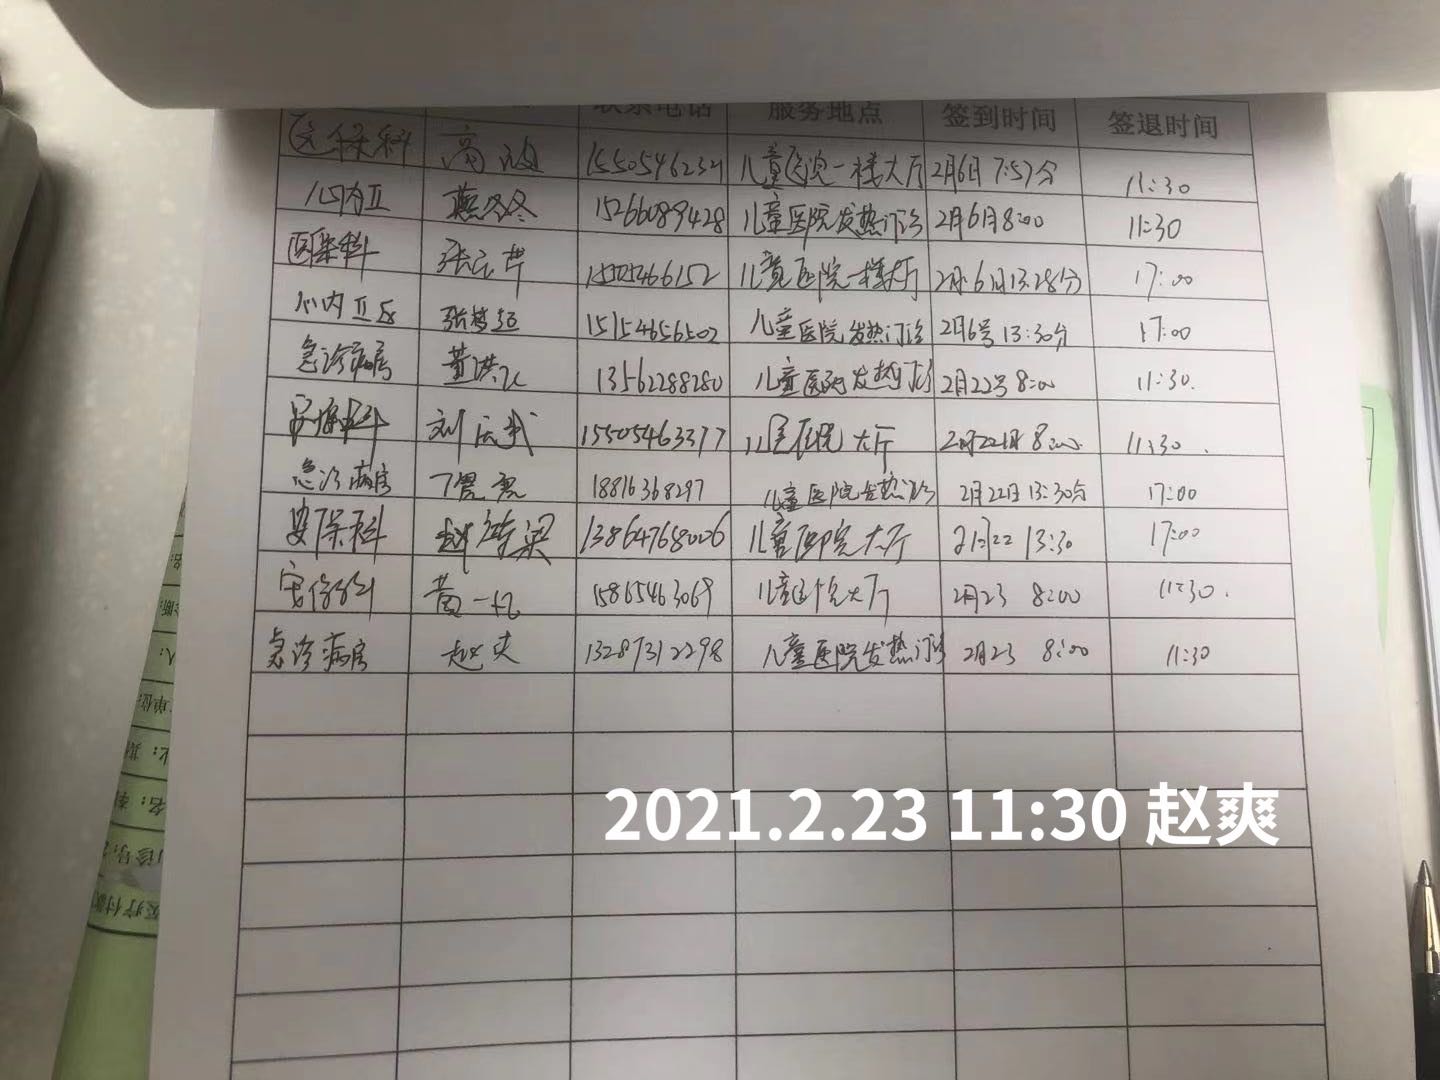 联系电话 服务地点 签到时间 签退时间
医保科 高 15505462321 儿童医院一楼大厅 2月6日 7:57分 11:30
心内Ⅱ 冬 15266089428 儿童医院发热门诊 2月6日8:00 11:30
张 15505466152 儿童医院一楼大厅 2月6日13:28分 17:00
心内Ⅱ区 张梦超 15154656502 儿童医院发热门诊 2月6号 13:30分 17:00
急诊病房 董洪飞 13562288280 儿童医院发热门诊 2月22号 8:00 11:30.
刘庆武 15505463377 儿童医院大厅 2月22日 8:00. 11:30.
急诊病房 丁 18816368297 儿童医院发热门诊 2月22日 13:30分 17:00
安保科 赵 梁 13864768006 儿童医院大厅 2月22 13:30 17:00
黄一凡 15865463069 儿童医院大厅 2月23 8:00 11:30.
急诊病房 赵爽 13287312298 儿童医院发热门诊 2月23 8:00 11:30
2021.2.23 11:30 赵爽